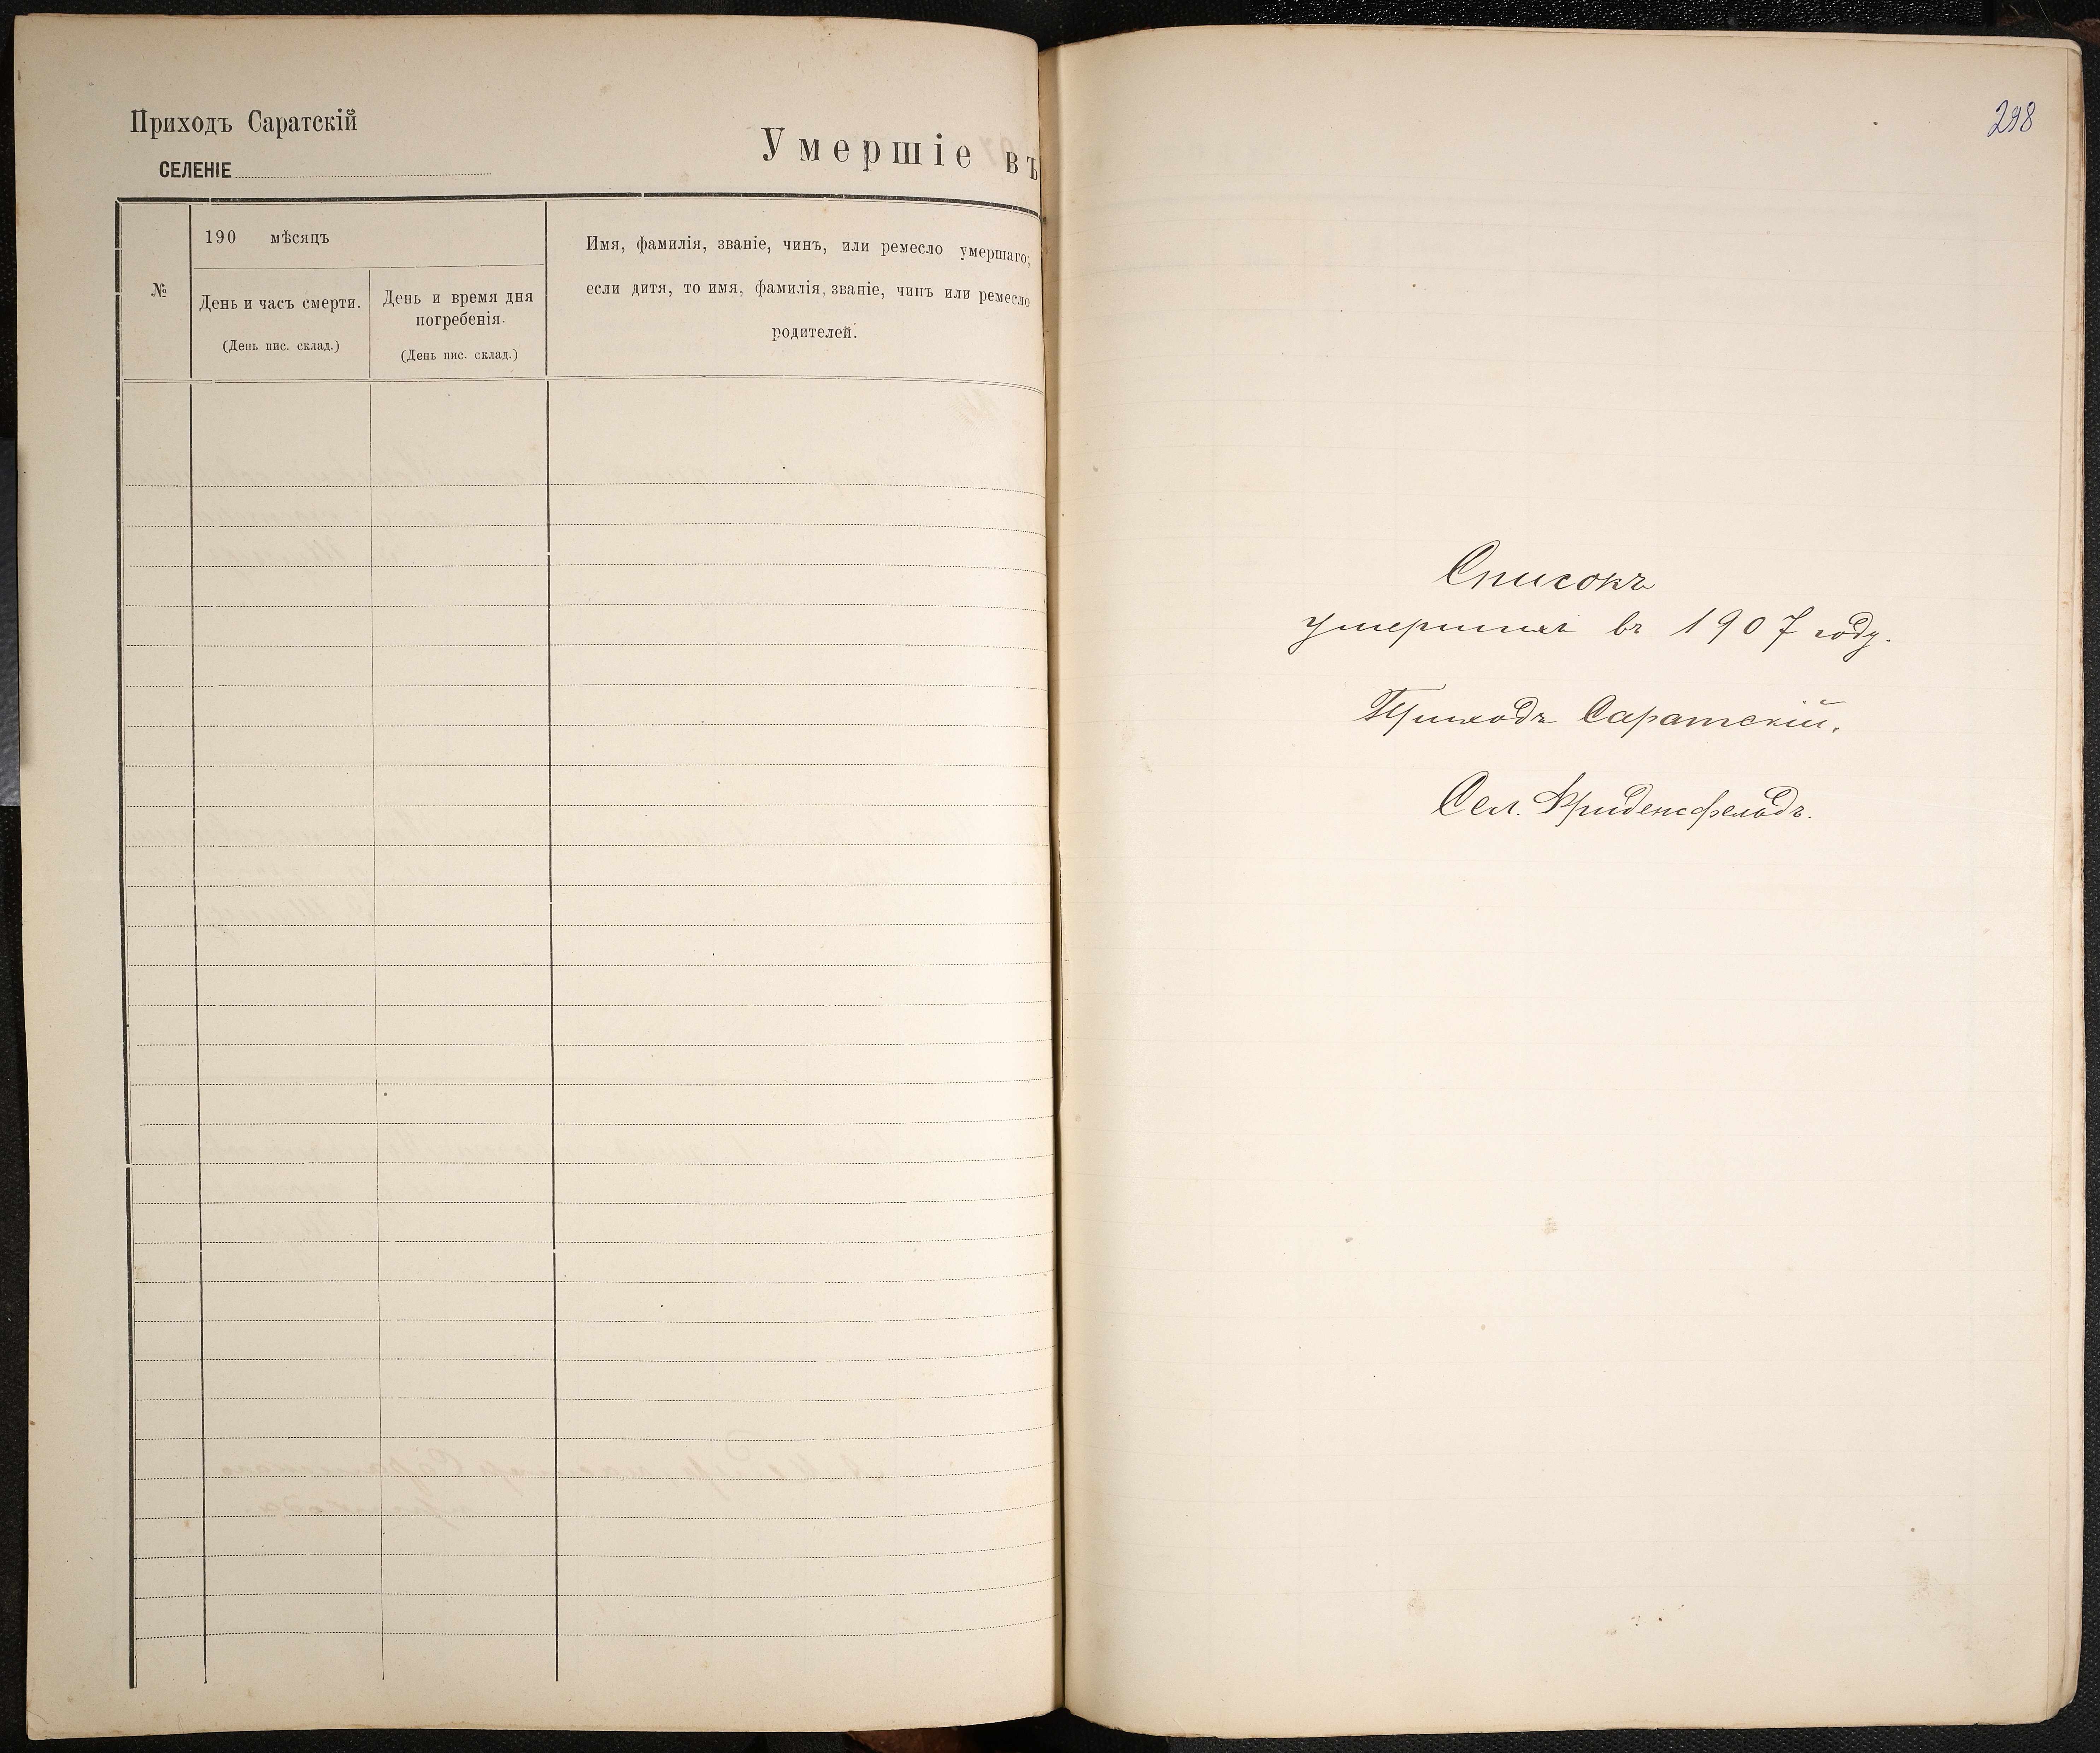 Приходъ Саратскій
СЕЛЕНІЕ
Умершіе въ
№
190 мѣсяцъ
День и часъ смерти.
(День пис. склад.)
День и время дня
погребенія.
(День пис. склад.)
Имя, фамилія, званіе, чинъ, или ремесло умершаго;
если дитя, то имя, фамилія, званіе, чинъ или ремесло
родителей.
298
Списокъ
умершихъ въ 1907 году.
Приходъ Саратскій.
Сел. Фриденсфельдъ.